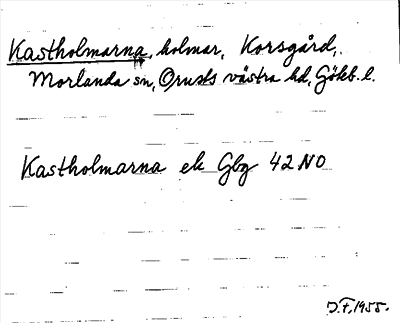 Kastholmarna, holmar, Korsgård,
Morlanda sn, Orusts västra hd, Göteb. l.
Kastholmarna ek Gbg 42 NO
J.F. 1955.